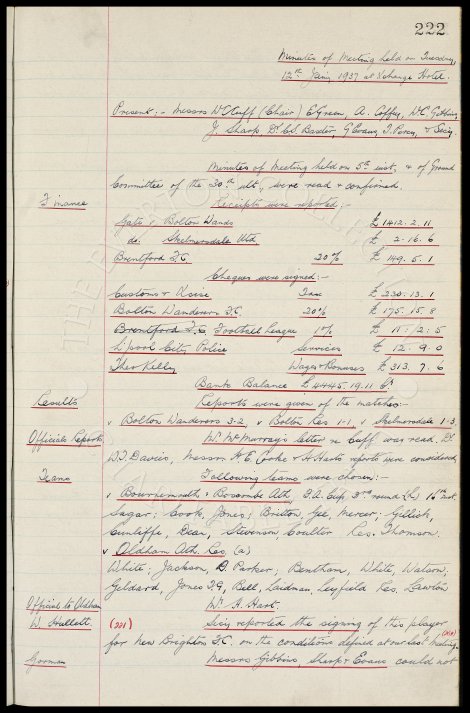 222
Minutes of Meeting held on Tuesday,
12th Jany 1937 at Exchange Hotel.
Present:- Messrs W.C. Cuff (Chair) E. Green, A. Coffey, W.C. Gibbins
J. Sharp, Dr. C.S. Baxter, G. Evans, T. Percy, & Secy.
Minutes of Meeting held on 5th inst, & of Ground
Committee of the 30th ult, were read & confirmed.
Finance Receipts were reported:-
Gate v Bolton Wands £ 1412. 2. 11
do. Skelmersdale Utd £ 2. 16. 6
Brentford F.C. 20% £ 149. 5. 1
Cheques were signed:-
Customs & Excise Tax £ 230. 13. 1
Bolton Wanderers F.C. 20% £ 175. 15. 8
Brentford F.C. Football League 1% £ 12. 5
L'pool City Police Services £ 12. 9. 0
Theo Kelly Wages & Bonuses £ 313. 7. 6
Bank Balance £ 4445. 19. 11
Results Reports were given of the matches:-
v Bolton Wanderers 3-2 v Bolton Res 1-1 v Skelmersdale 1-3.
Officials Reports Mr. McMurray's letter re Cuff was read, Dr
W.J. Davies, Messrs H.E. Cooke & H. Harts reports were considered.
Teams Following teams were chosen:-
v Bournemouth & Boscombe Ath, F.A. Cup 3rd round (h) 16th inst.
Sagar; Cook, Jones; Britton, Gee, Mercer; Gillick,
Cunliffe, Dean, Stevenson Coulter Res. Thomson.
v Oldham Ath. Res. (a)
White; Jackson, Parker; Bentham, White, Watson
Geldard, Jones T.G, Bell, Laidman Leyfield Res. Lawton
Official to Oldham Mr. H. Hart.
W. Hallett. (221) Secy reported the signing of this player
for New Brighton F.C. on the conditions defined at our last Meeting.
Gorman Messrs Gibbins, Sharp & Evans could not